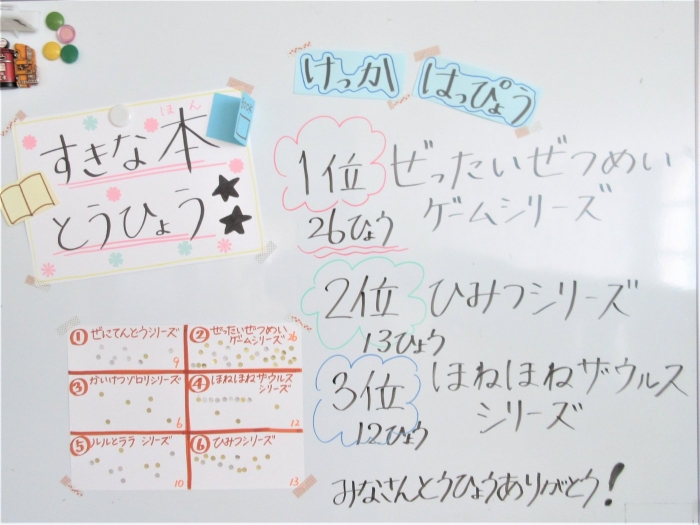 ほん
すきな本
とうひょう
けっか
はっぴょう
1位 ぜったいぜつめい
ゲームシリーズ
26ひょう
2位 ひみつシリーズ
13ひょう
3位 ほねほねザウルス
シリーズ
12ひょう
みなさんとうひょうありがとう!
① ぜにてんどうシリーズ
9
② ぜったいぜつめい
ゲームシリーズ
26
③ かいけつゾロリシリーズ
6
④ ほねほねザウルス
シリーズ
12
⑤ ルルとララ シリーズ
10
⑥ ひみつシリーズ
13